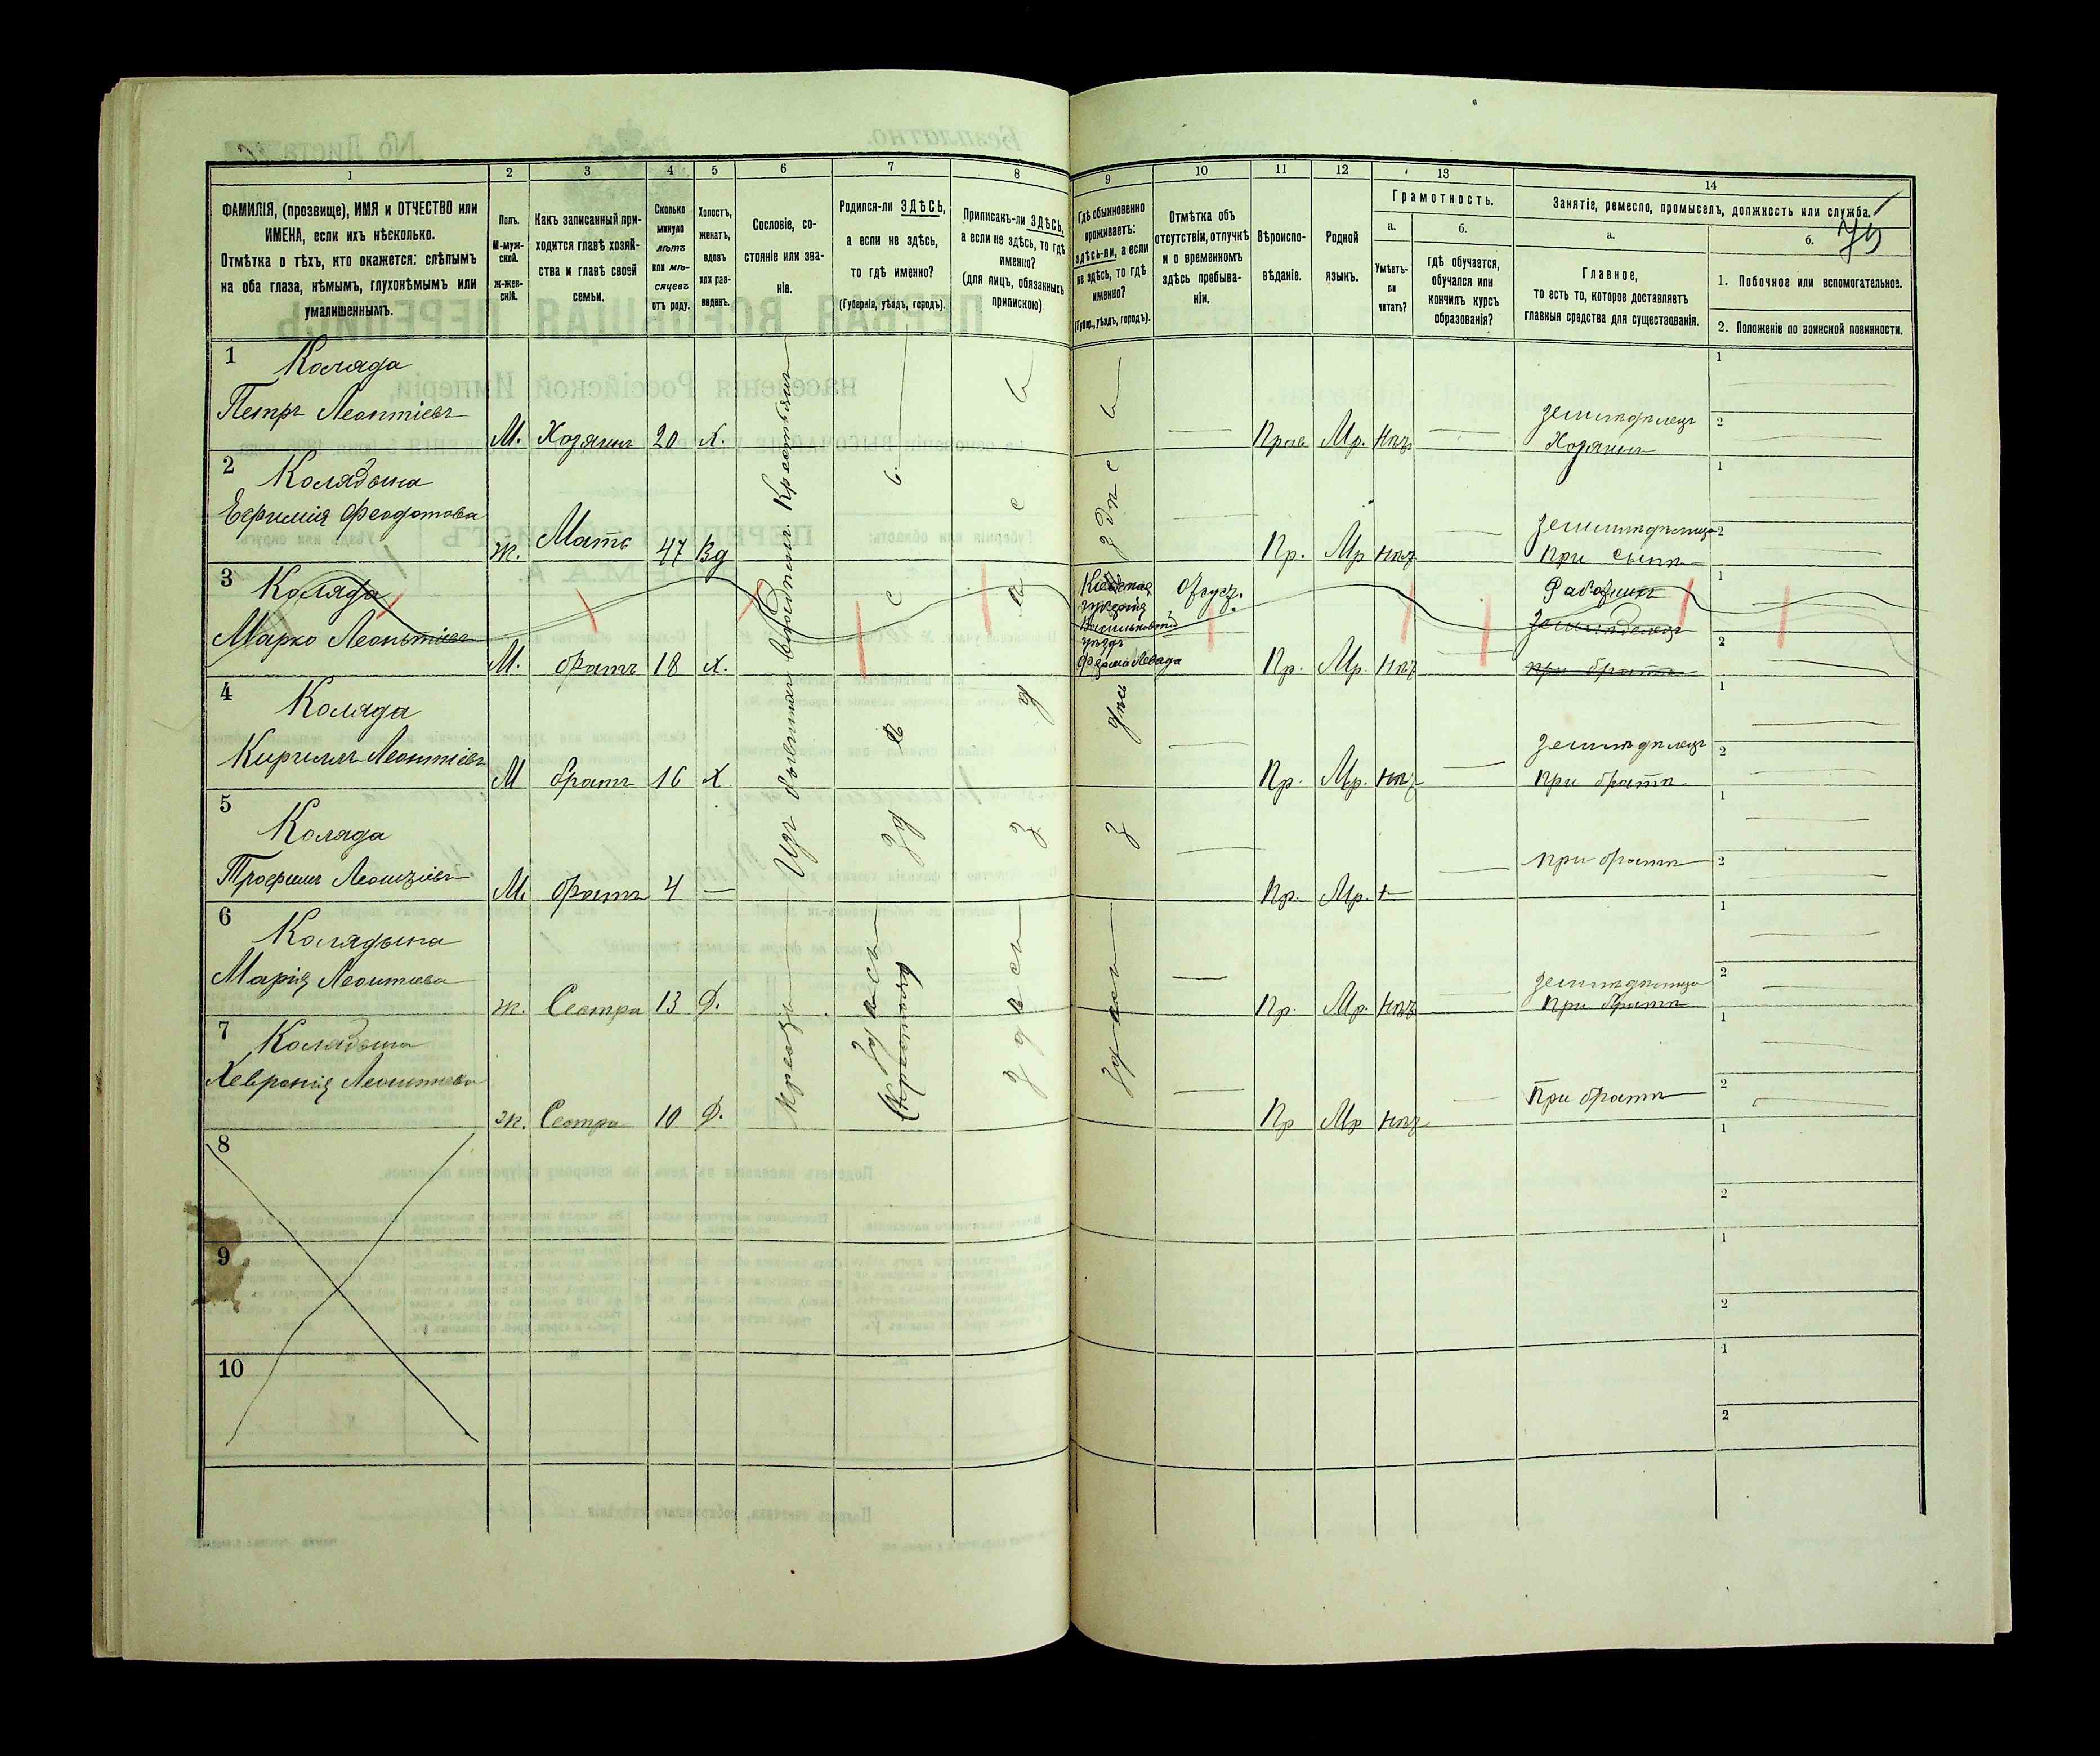 1 2 3 4 5 6 7 8 9 10 11 12 13 14
ФАМИЛІЯ, (прозвище), ИМЯ и ОТЧЕСТВО или
ИМЕНА, если ихъ нѣсколько.
Отмѣтка о тѣхъ, кто окажется: слѣпымъ
на оба глаза, нѣмымъ, глухонѣмымъ или
умалишеннымъ.
Полъ.
М-муж-
ской.
ж-жен-
скій.
Какъ записанный при-
ходится главѣ хозяй-
ства и главѣ своей
семьи.
Сколько
минуло
лѣтъ
или мѣ-
сяцевъ
отъ роду.
Холостъ,
женатъ,
вдовъ
или раз-
веденъ.
Сословіе, со-
стояніе или зва-
ніе.
Родился-ли ЗДѢСЬ,
а если не здѣсь,
то гдѣ именно?
(Губернія, уѣздъ, городъ).
Приписанъ-ли ЗДѢСЬ,
а если не здѣсь, то гдѣ
именно?
(для лицъ, обязанныхъ
припискою)
Гдѣ обыкновенно
проживаетъ:
здѣсь-ли, а если
не здѣсь, то гдѣ
именно?
(Губер., уѣздъ, городъ).
Отмѣтка объ
отсутствіи, отлучкѣ
и о временномъ
здѣсь пребыва-
ніи.
Вѣроиспо-
вѣданіе.
Родной
языкъ.
Грамотность.
а.
Умѣетъ-
ли
читать?
б.
гдѣ обучается,
обучался или
кончилъ курсъ
образованія?
Занятіе, ремесло, промыселъ, должность или служба.
а.
Главное,
то есть то, которое доставляетъ
главныя средства для существованія.
б.
1. Побочное или вспомогательное.
2. Положеніе по воинской повинности.
1 Коляда
Петръ Леонтіевъ
М. Хозяинъ 20 Х. Прав Мр. Нѣтъ
земледѣлецъ
Хозяинъ
2 Колядына
Евфимія Феодотова
ж. Мать 47 Вд Пр. Мр нѣт
при сынѣ
3 Коляда
Марко Леонтіевъ
М. братъ 18 Х. Пр. Мр. Нѣт
Кіевская
губернія
уѣздъ
Отсут.
земледѣлецъ
при братѣ
4 Коляда
Кириллъ Леонтіевъ
М братъ 16 Х Пр. Мр. нѣт
земледѣлецъ
при братѣ
5 Коляда
Трофимъ Леонтіевъ
М. братъ 4 — Пр. Мр. —
при братѣ
6 Колядына
Марія Леонтіева
ж. Сестра 13 Д. Пр. Мр. Нѣт
при братѣ
7 Колядына
Хевронія Леонтіева
ж. Сестра 10 Д. Пр Мр нѣт
При братѣ
Изъ бывшихъ владѣльч. Крестьянъ
Здѣсь
Здѣсь
Здѣсь
8
9
10